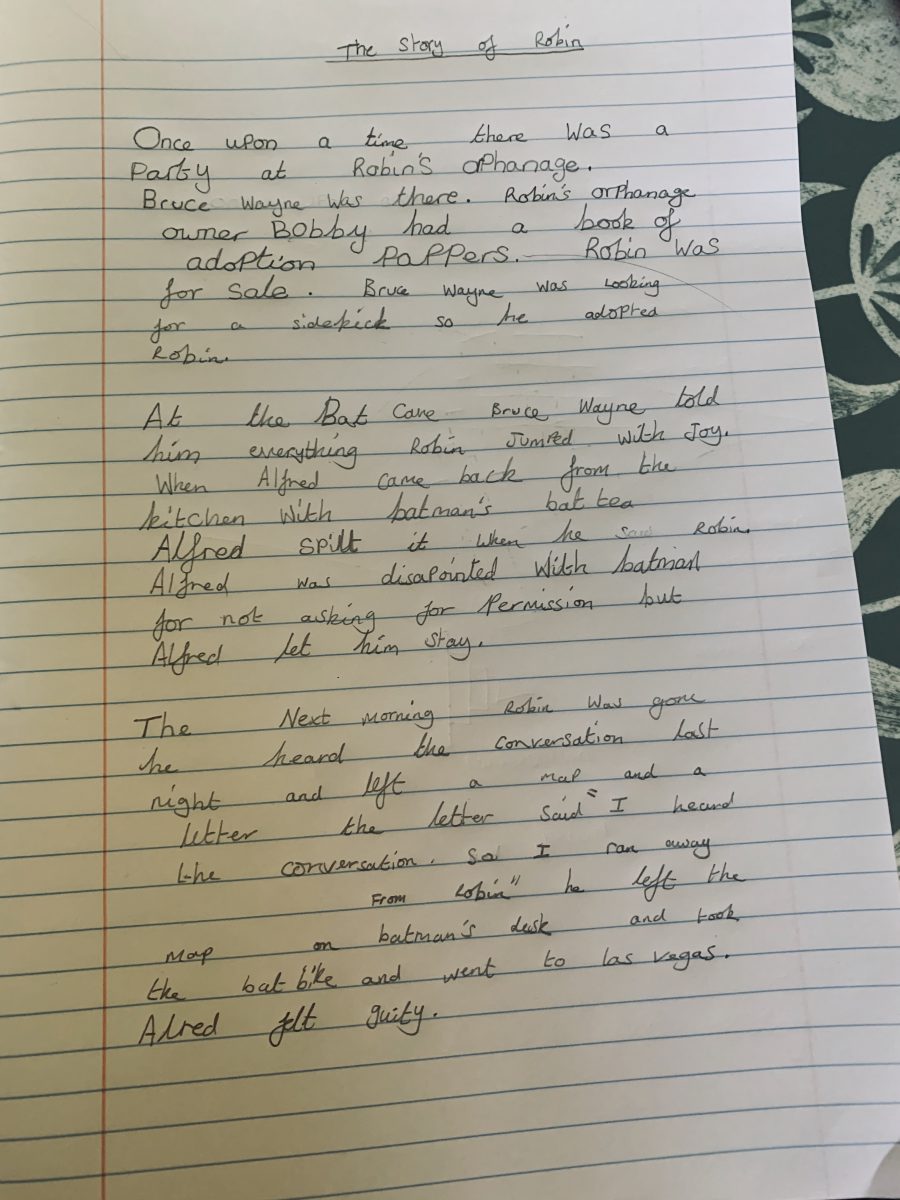 The Story of Robin
Once upon a time there was a
Party at Robin's orphanage.
Bruce Wayne was there. Robin's orphanage
owner Bobby had a book of
adoption Pappers. Robin was
for sale. Bruce Wayne was Looking
for a sidekick so he adopted
Robin.
At the Bat Cave Bruce Wayne told
him everything Robin Jumped with Joy.
When Alfred came back from the
kitchen with batman's bat tea
Alfred spilt it when he saw Robin.
Alfred was disapointed with batman
for not asking for Permission but
Alfred let him stay.
The Next morning Robin was gone
he heard the conversation last
night and left a map and a
letter the letter said "I heard
the conversation. So I ran away
From Robin" he left the
map on batman's desk and took
the bat bike and went to las vegas.
Alred felt guity.